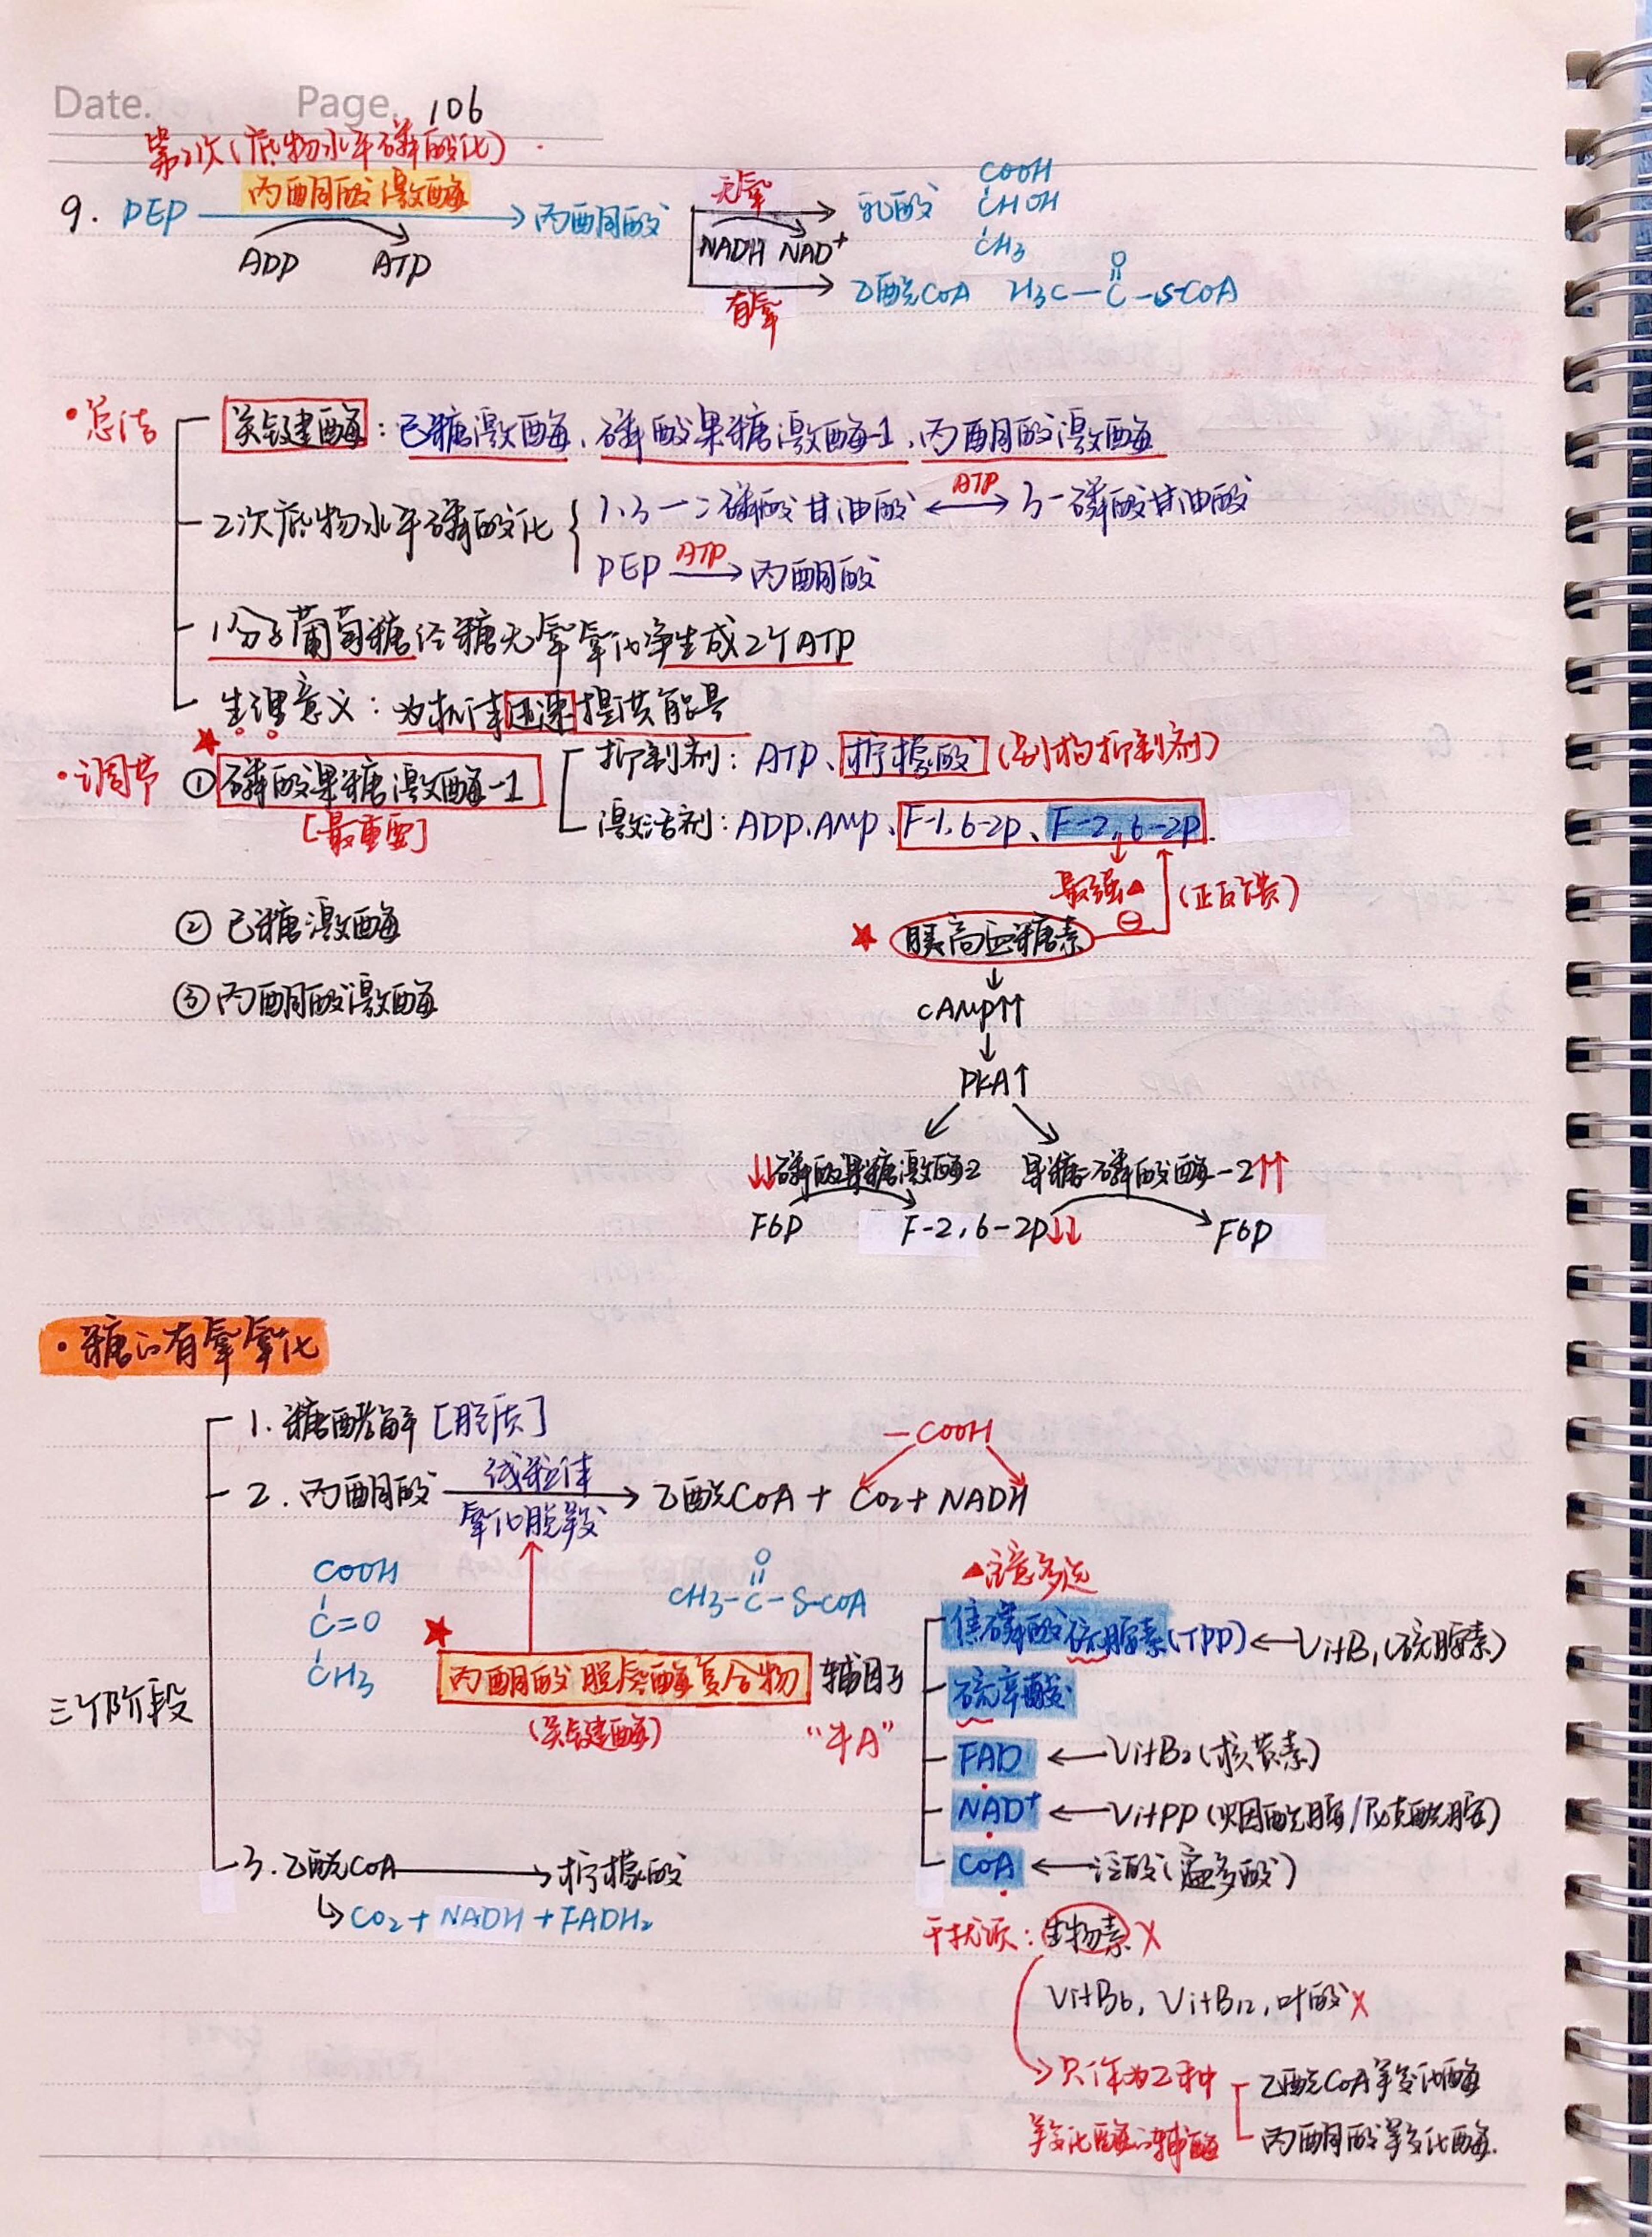 Date. Page. 106
第2次(底物水平磷酸化)
9. PEP 丙酮酸激酶 丙酮酸
ADP ATP
无氧 乳酸
NADH NAD⁺
有氧 乙酰CoA
COOH
CHOH
CH₃
O
H₃C—C—S-CoA
·总结
关键酶：己糖激酶、磷酸果糖激酶-1、丙酮酸激酶
2次底物水平磷酸化
1.3一二磷酸甘油酸 ←ATP→ 3-磷酸甘油酸
PEP ATP→ 丙酮酸
1分子葡萄糖经糖无氧氧化净生成2个ATP
生理意义：为机体迅速提供能量
·调节 ①磷酸果糖激酶-1
[最重要]
抑制剂：ATP、柠檬酸(别构抑制剂)
激活剂：ADP.AMP、F-1,6-2P、F-2,6-2P.
最强 (正反馈)
②己糖激酶
胰高血糖素 ⊖
③丙酮酸激酶
cAMP↑↑
↓
PKA↑
↓↓磷酸果糖激酶2 果糖二磷酸酶-2↑↑
F6P F-2,6-2P↓↓ F6P
·糖的有氧氧化
三个阶段
1. 糖酵解[胞质]
2. 丙酮酸 线粒体 氧化脱羧 → 乙酰CoA + CO₂ + NADH
—COOH
COOH
C=O
CH₃
O
CH₃-C-S-CoA
丙酮酸脱氢酶复合物 辅因子
(关键酶) "牛A"
注意多选
焦磷酸硫胺素(TPP) ← VitB₁(硫胺素)
硫辛酸
FAD ← VitB₂(核黄素)
NAD⁺ ← VitPP(烟酰胺/尼克酰胺)
CoA ← 泛酸(遍多酸)
3. 乙酰CoA → 柠檬酸
↳ CO₂ + NADH + FADH₂
干扰项：生物素 X
VitB₆, VitB₁₂, 叶酸 X
→只作为2种
羧化酶的辅酶
乙酰CoA羧化酶
丙酮酸羧化酶.